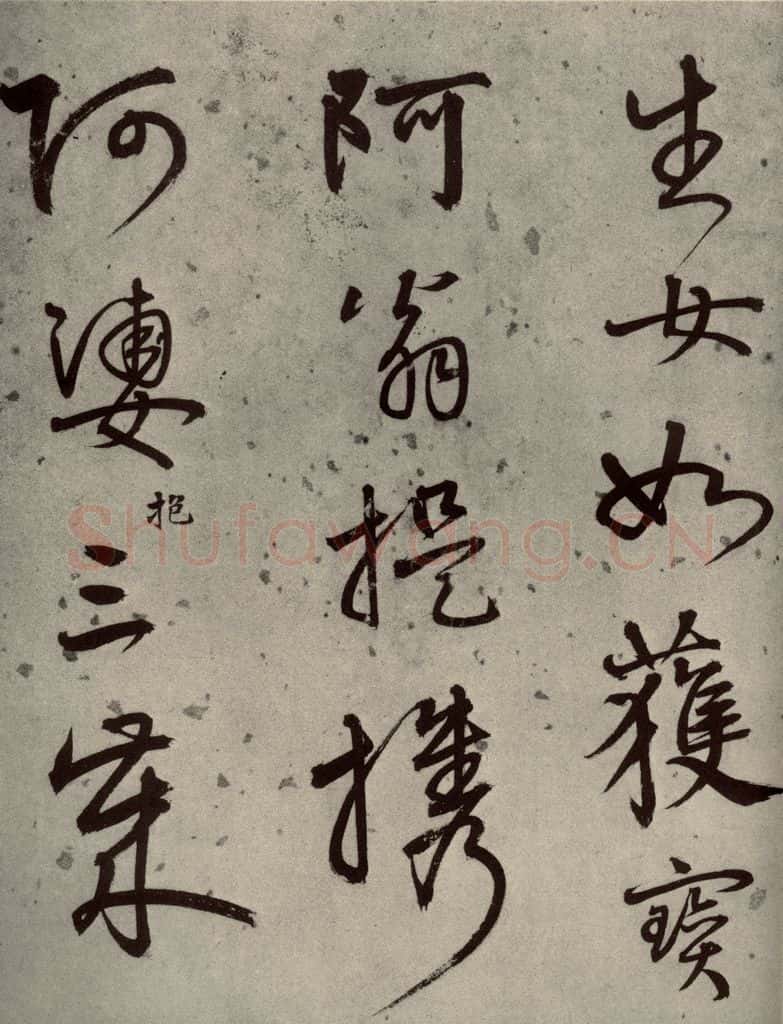 生女如獲寶
阿翁提攜
阿婆抱三歲
Shufawang.CN